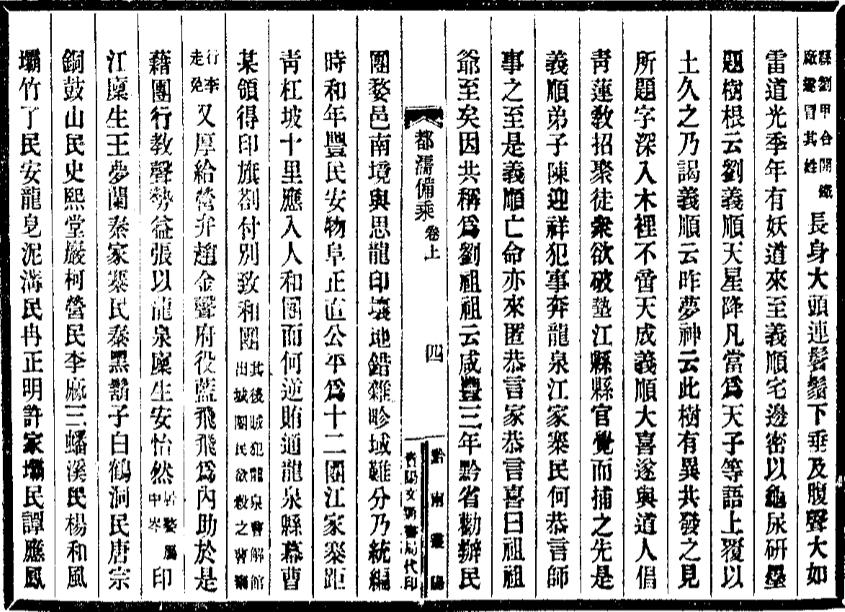 縣劉甲合開鐵
廠遂冒其姓
長身大頭連鬢鬚下垂及腹聲大如
雷道光季年有妖道來至義順宅邊密以龜尿研墨
題樹根云劉義順天星降凡當爲天子等語上覆以
土久之乃謁義順云昨夢神云此樹有異共發之見
所題字深入木裡不啻天成義順大喜遂與道人倡
靑蓮敎招聚徒衆欲破墊江縣縣官覺而捕之先是
義順弟子陳迎祥犯事奔龍泉江家寨民何恭言師
事之至是義順亡命亦來匿恭言家恭言喜曰祖祖
爺至矣因共稱爲劉祖祖云咸豐三年黔省勸辦民
都濡備乘 卷上 四
黔南叢
貴陽文通書局代印
團婺邑南境與思龍印壤地錯雜畛域難分乃統編
時和年豐民安物阜正直公平爲十二團江家寨距
靑杠坡十里應入人和團而何逆賄通龍泉縣幕曹
某領得印旗劄付別致和團
其後賊犯龍泉曹解館
出城團民欲殺之曹棄
行李
走免
又厚給營弁趙金聲府役藍飛飛爲內助於是
藉團行敎聲勢益張以龍泉廩生安怡然
居婺屬
中岑
印
江廩生王夢蘭秦家寨民秦黑鬍子白鶴洞民唐宗
銅鼓山民史熙堂嚴柯營民李庶三蟠溪民楊和風
壩竹了民安龍皂泥溝民冉正明許家壩民譚應鳳